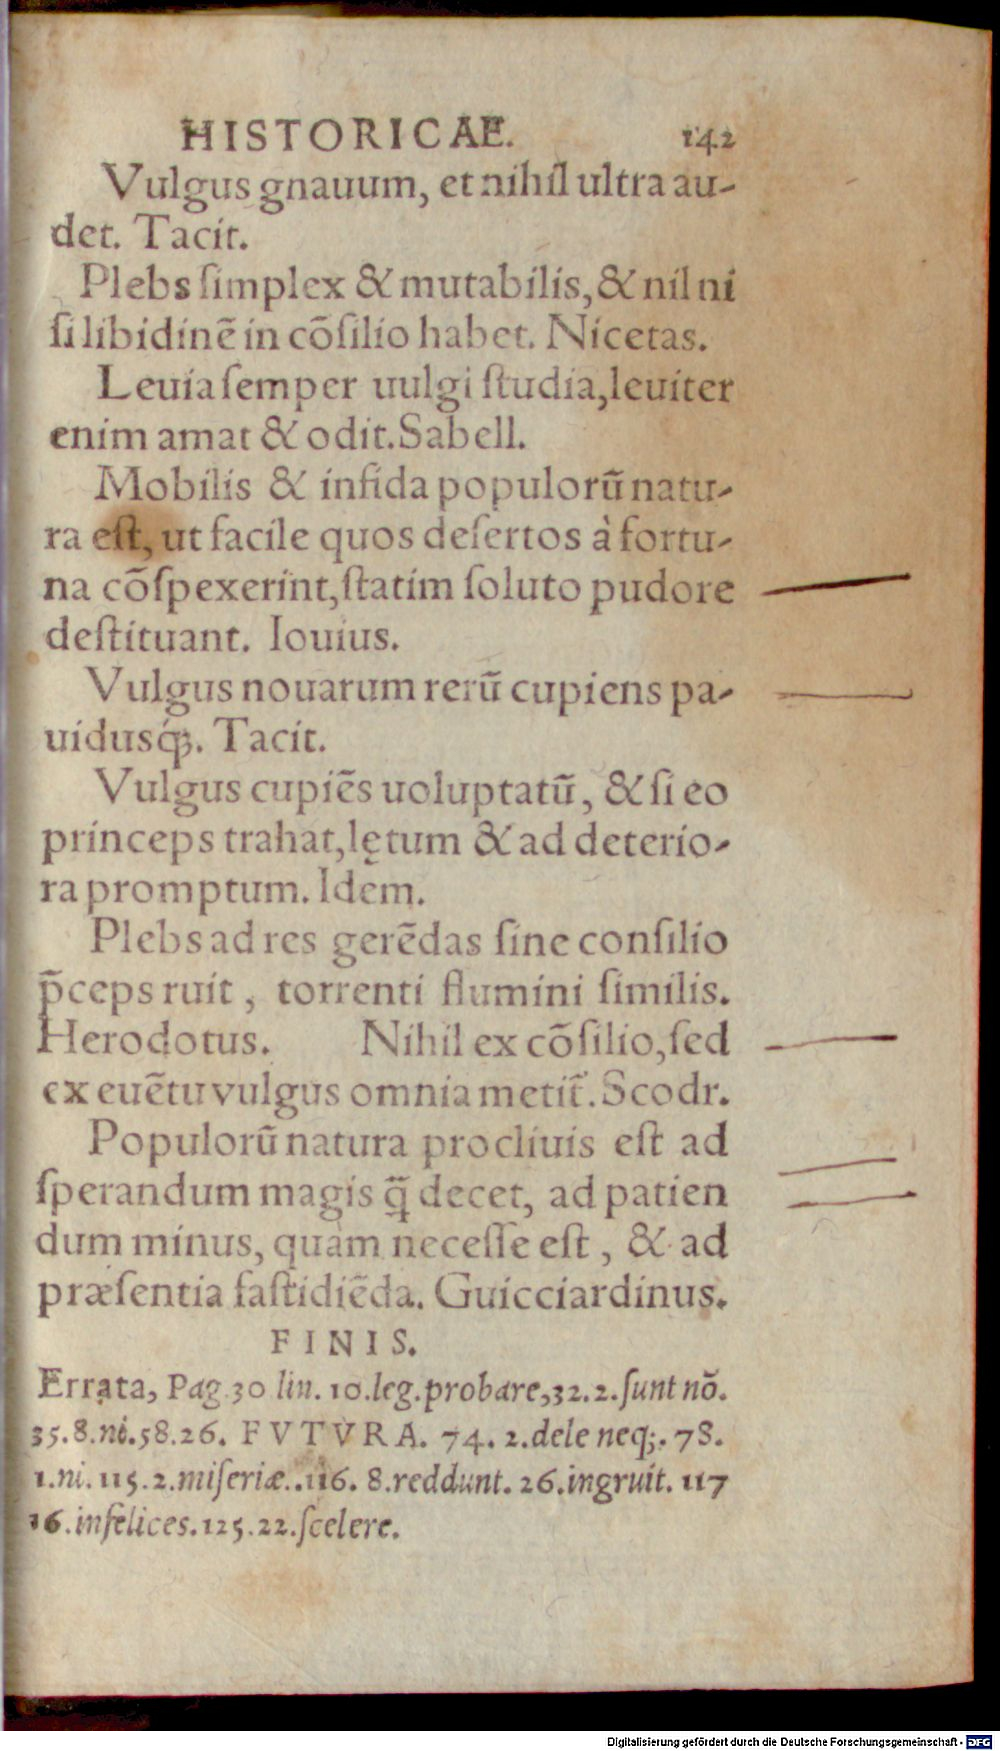 HISTORICAE. 142
Vulgus gnauum, et nihil ultra au-
det. Tacit.
Plebs ſimplex & mutabilis, & nil ni
ſi libidinē in cōſilio habet. Nicetas.
Leuia ſemper uulgi ſtudia, leuiter
enim amat & odit. Sabell.
Mobilis & infida populorū natu-
ra eſt, ut facile quos deſertos à fortu-
na cōſpexerint, ſtatim ſoluto pudore
deſtituant. Iouius.
Vulgus nouarum rerū cupiens pa-
uidusq́;. Tacit.
Vulgus cupiēs uoluptatū, & ſi eo
princeps trahat, lętum & ad deterio-
ra promptum. Idem.
Plebs ad res gerēdas ſine conſilio
p̄ceps ruit, torrenti flumini ſimilis.
Herodotus. Nihil ex cōſilio, ſed
ex euētu vulgus omnia metit᷑. Scodr.
Populorū natura procliuis eſt ad
ſperandum magis q̄ decet, ad patien
dum minus, quàm neceſſe eſt, & ad
præſentia faſtidiēda. Guicciardinus.
FINIS.
Errata, Pag. 30 lin. 10. leg. probare, 32. 2. ſunt nō.
35. 8. ni. 58. 26. FVTVRA. 74. 2. dele neq;. 78.
1. ni. 115. 2. miſeriæ.. 116. 8. reddunt. 26. ingruit. 117
16. infelices. 125. 22. ſcelere.
Digitalisierung gefördert durch die Deutsche Forschungsgemeinschaft - DFG